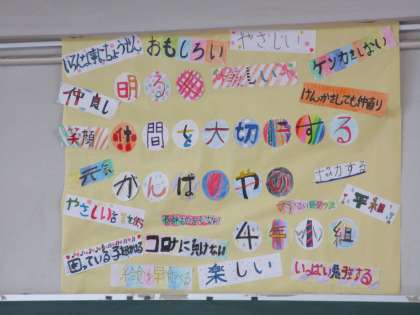 いろんな事にちょうせん
おもしろい
やさしい
ケンカをしない
明る
しい
仲良し
けんかをしても仲直り
笑顔
仲間を大切にする
元気
がんばりやの
協力する
やさしい
平組
4年1組
困っている子を助ける
コロナに負けない
給食を早食べる
楽しい
いっぱい勉強する